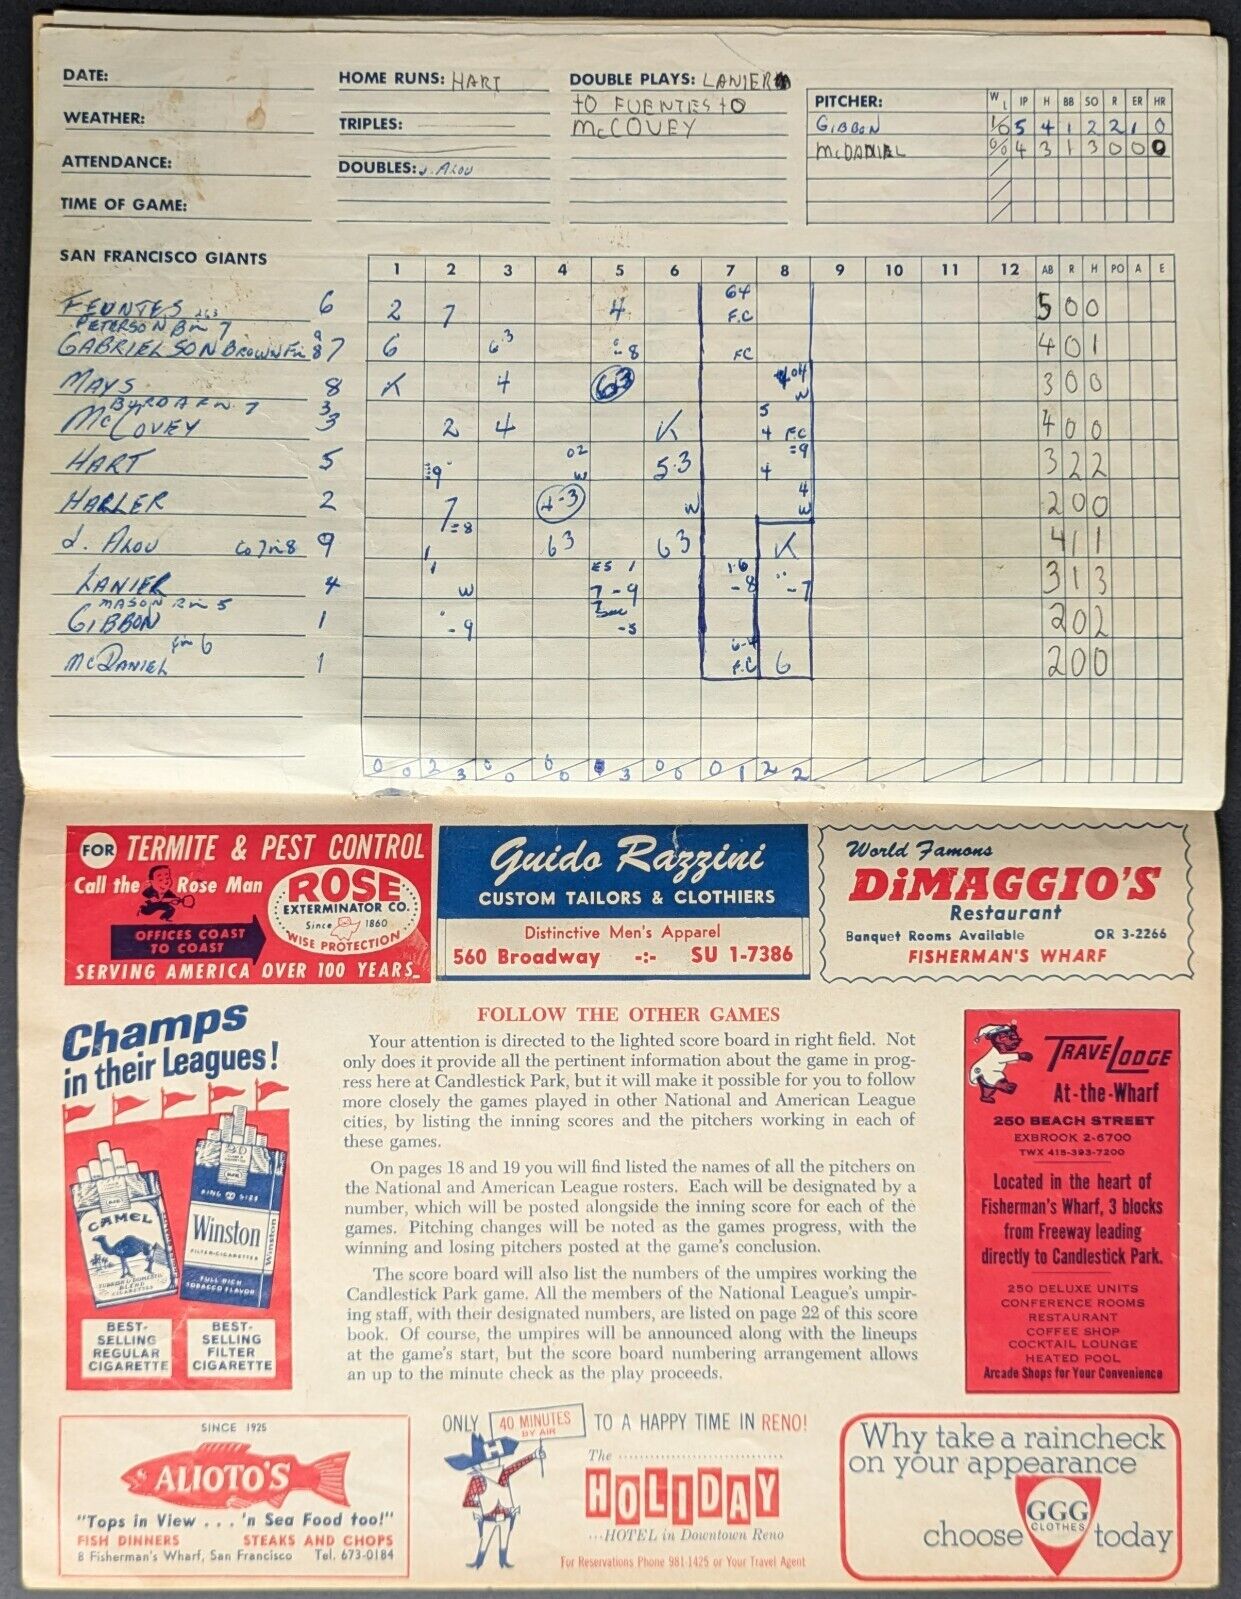 DATE:
WEATHER:
ATTENDANCE:
TIME OF GAME:
HOME RUNS: HART
TRIPLES:
DOUBLES: J. ALOU
DOUBLE PLAYS: LANIER
TO FUENTES TO
McCOVEY
PITCHER: W L IP H BB SO R ER HR
GIBBON 1/0 5 4 1 2 2 1 0
McDANIAL 0/0 4 3 1 3 0 0 0
SAN FRANCISCO GIANTS
1 2 3 4 5 6 7 8 9 10 11 12 AB R H PO A E
FEUNTES 6 2 7 4 64 F.C 5 0 0
PETERSON 7
GABRIELSON BROWN 7 6 63 -8 FC 4 0 1
MAYS 8 K 4 63 W 3 0 0
McCOVEY 3 2 4 K 5 4 F.C 4 0 0
HART 5 =9 02 W 5-3 =9 4 3 2 2
HALLER 2 7 4-3 W 4 W 2 0 0
J. ALOU 9 =8 63 63 K 4 1 1
LANIER 4 W 7-9 -8 -7 3 1 3
MASON R in 5
GIBBON 1 -9 -5 2 0 2
McDANIEL 1 6-4 F.C 6 2 0 0
0 0 2 3 0 0 0 0 3 0 0 0 1 2 2
FOR TERMITE & PEST CONTROL
Call the Rose Man
OFFICES COAST
TO COAST
ROSE
EXTERMINATOR CO.
Since 1860
WISE PROTECTION
SERVING AMERICA OVER 100 YEARS
Guido Razzini
CUSTOM TAILORS & CLOTHIERS
Distinctive Men's Apparel
560 Broadway -:- SU 1-7386
World Famous
DiMAGGIO'S
Restaurant
Banquet Rooms Available OR 3-2266
FISHERMAN'S WHARF
Champs
in their Leagues!
CAMEL
KING SIZE
Winston
FILTER-CIGARETTES
FULL RICH
TOBACCO FLAVOR
Winston
BEST-
SELLING
REGULAR
CIGARETTE
BEST-
SELLING
FILTER
CIGARETTE
FOLLOW THE OTHER GAMES
Your attention is directed to the lighted score board in right field. Not
only does it provide all the pertinent information about the game in prog-
ress here at Candlestick Park, but it will make it possible for you to follow
more closely the games played in other National and American League
cities, by listing the inning scores and the pitchers working in each of
these games.
On pages 18 and 19 you will find listed the names of all the pitchers on
the National and American League rosters. Each will be designated by a
number, which will be posted alongside the inning score for each of the
games. Pitching changes will be noted as the games progress, with the
winning and losing pitchers posted at the game's conclusion.
The score board will also list the numbers of the umpires working the
Candlestick Park game. All the members of the National League's umpir-
ing staff, with their designated numbers, are listed on page 22 of this score
book. Of course, the umpires will be announced along with the lineups
at the game's start, but the score board numbering arrangement allows
an up to the minute check as the play proceeds.
TRAVELODGE
At-the-Wharf
250 BEACH STREET
EXBROOK 2-6700
TWX 415-393-7200
Located in the heart of
Fisherman's Wharf, 3 blocks
from Freeway leading
directly to Candlestick Park.
250 DELUXE UNITS
CONFERENCE ROOMS
RESTAURANT
COFFEE SHOP
COCKTAIL LOUNGE
HEATED POOL
Arcade Shops for Your Convenience
SINCE 1925
ALIOTO'S
"Tops in View . . . 'n Sea Food too!"
FISH DINNERS STEAKS AND CHOPS
8 Fisherman's Wharf, San Francisco Tel. 673-0184
ONLY 40 MINUTES BY AIR TO A HAPPY TIME IN RENO!
The
HOLIDAY
...HOTEL in Downtown Reno
For Reservations Phone 981-1425 or Your Travel Agent
Why take a raincheck
on your appearance
choose GGG CLOTHES today